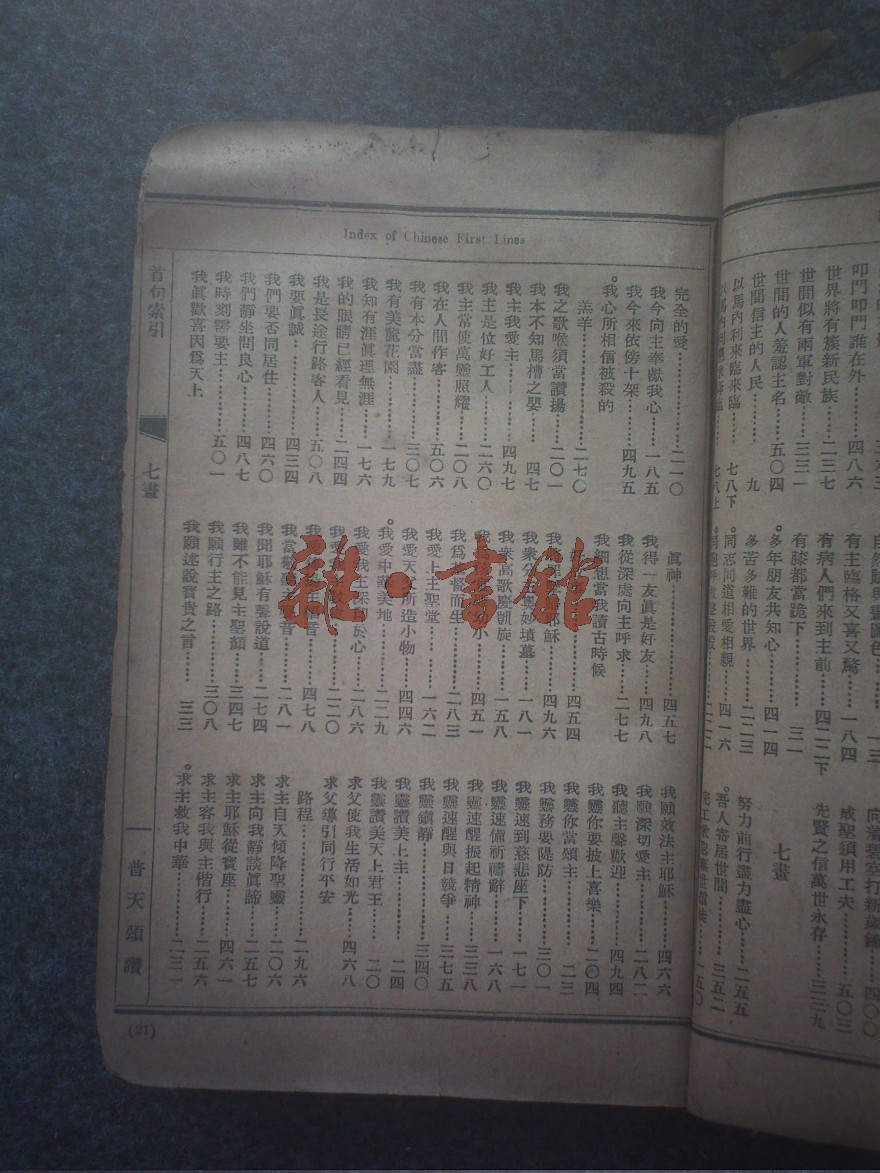 Index of Chinese First Lines
完全的愛…………二一〇
我今向主奉獻我心……一八五
我今來依傍十架………四九五
我心所相信被殺的
羔羊…………二七〇
我之歌喉須當讚揚……二〇一
我本不知馬槽之嬰……四七
我主我愛主…………四九七
我主是位好工人………二六〇
我主常使萬靈照耀……二〇八
我在人間作客…………五〇六
我有本分當盡…………三〇七
我有美麗花園…………一七九
我知有涯眞理無涯……一七六
我的眼睛已經看見……二四四
我是長途行路客人……五〇八
我要眞誠…………四三四
我們要否同居住………四六〇
我們靜坐問良心………四八七
我時刻需要主…………五〇一
我眞歡喜因爲天上
眞神…………四五七
我得一友眞是好友……四九八
我從深處向主呼求……二七七
我細想當我讀古時候
四五四
耶穌……四九六
妙墳墓……一八一
我衆高歌慶凱旋………一五八
小……四五一
我爲
督而生……二八三
我愛上主聖堂…………一六二
我愛天
所造小物……四四六
我愛中華美地…………二二九
我愛我主深
於心……二八六
我愛
二二〇
音……四七八
我當
音……二八一
我聞耶穌有聲說道……二七四
我雖不能見主聖顏……三四七
我願行主之路…………三〇八
我願述說寶貴之言……三三
我願效法主耶穌………四六六
我願深切愛主…………二八二
我聽主聲歡迎…………四九四
我靈你要披上喜樂……一〇四
我靈你當頌主…………二三
我靈務要隄防…………三〇一
我靈速到慈悲座下……一七一
我靈速備祈禱辭………一六八
我靈速醒振起精神……三三八
我靈速醒與日競爭……三七五
我靈鎮靜…………三四〇
我靈讚美上主…………二四
我靈讚美天上君王……二〇
求父使我生活如光……四六八
求父導引同行平安
路程…………二九六
求主自天傾降聖靈……二〇六
求主向我靜談眞諦……二五七
求主耶穌從寳座………四六一
求主容我與主偕行……二五六
求主救我中華…………二三一
首句索引
七畫
普天頌讚
(21)
叩門叩門誰在外………四八六
世界將有簇新民族……二三七
世間似有兩軍對敵……三三一
世間的人羞認主名……五〇四
世間信主的人民………九
以馬內利來臨來臨……七八下
七八上
有主臨格又喜又驚……一八四
有病人們來到主前……四二二下
有膝都當跪下…………三一
多年朋友共知心………四一四
多苦多難的世界………二二三
同志同道相愛相親……四一六
二二二
四〇〇
成聖須用工夫…………五〇三
先賢之信萬世永存……三三九
七畫
努力前行盡力盡心……二五五
吾人寄居世間…………三五二
一五〇
雜·書館